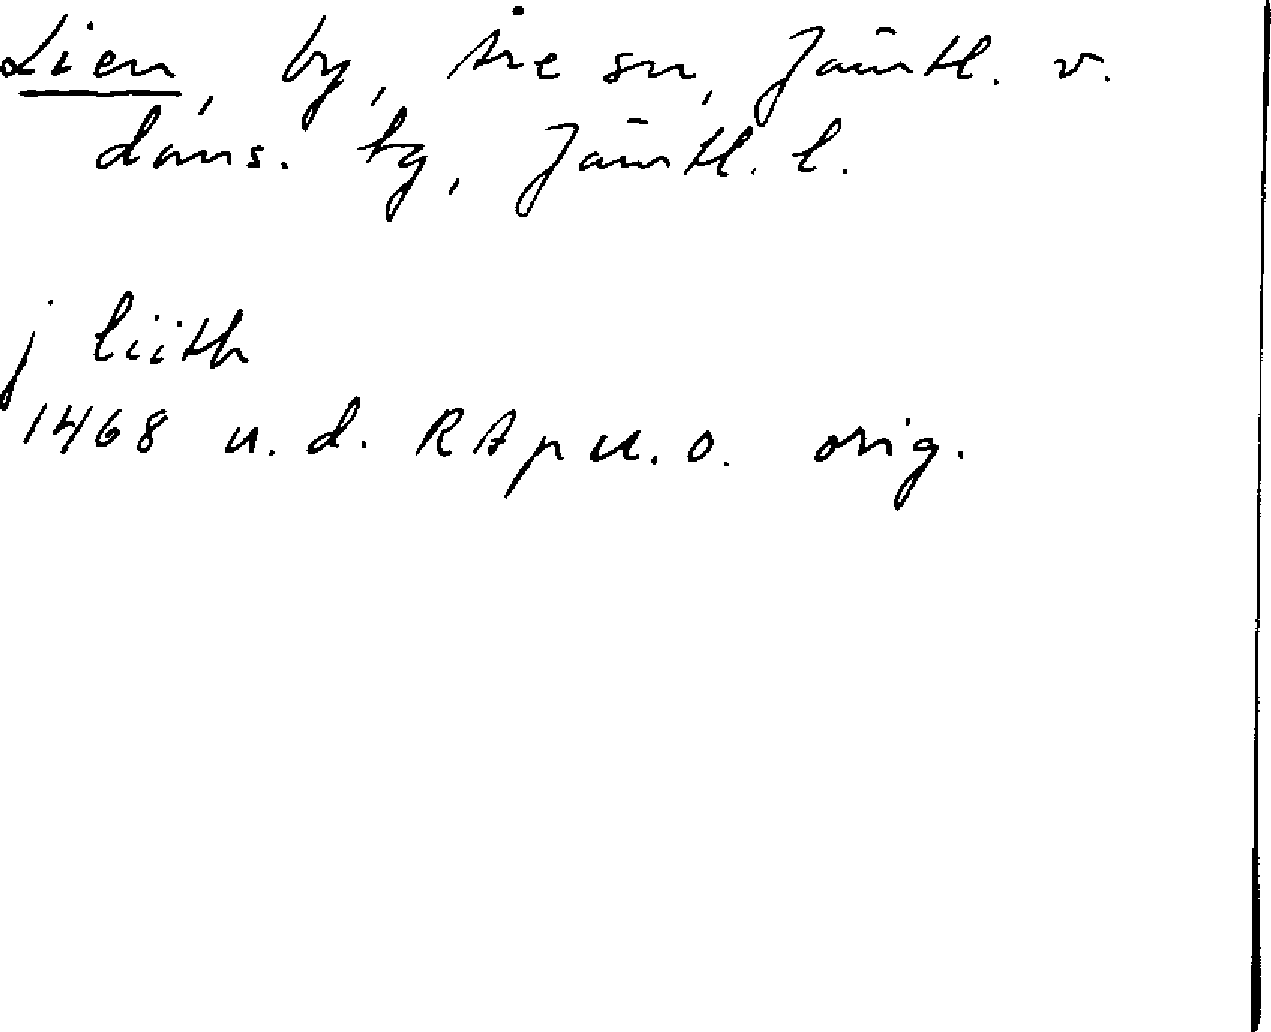 Lien, by, Åre sn, Jämtl. v.
doms. tg, Jämtl. l.
j liith
1468 u. d. RAp u. o. orig.